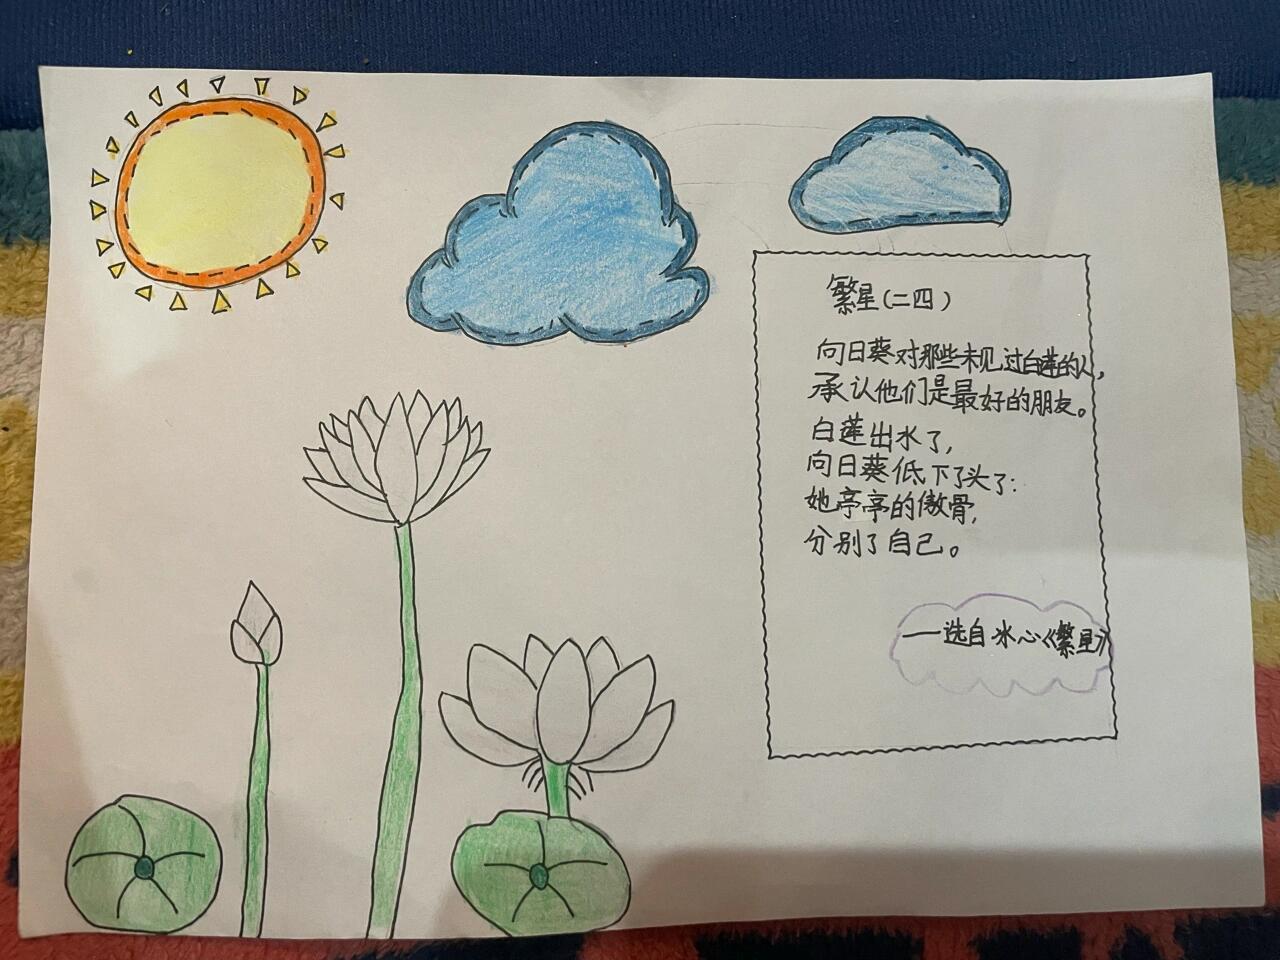 繁星(二四)
向日葵对那些未见过白莲的人，
承认他们是最好的朋友。
白莲出水了，
向日葵低下了头了：
她亭亭的傲骨，
分别了自己。
——选自冰心《繁星》